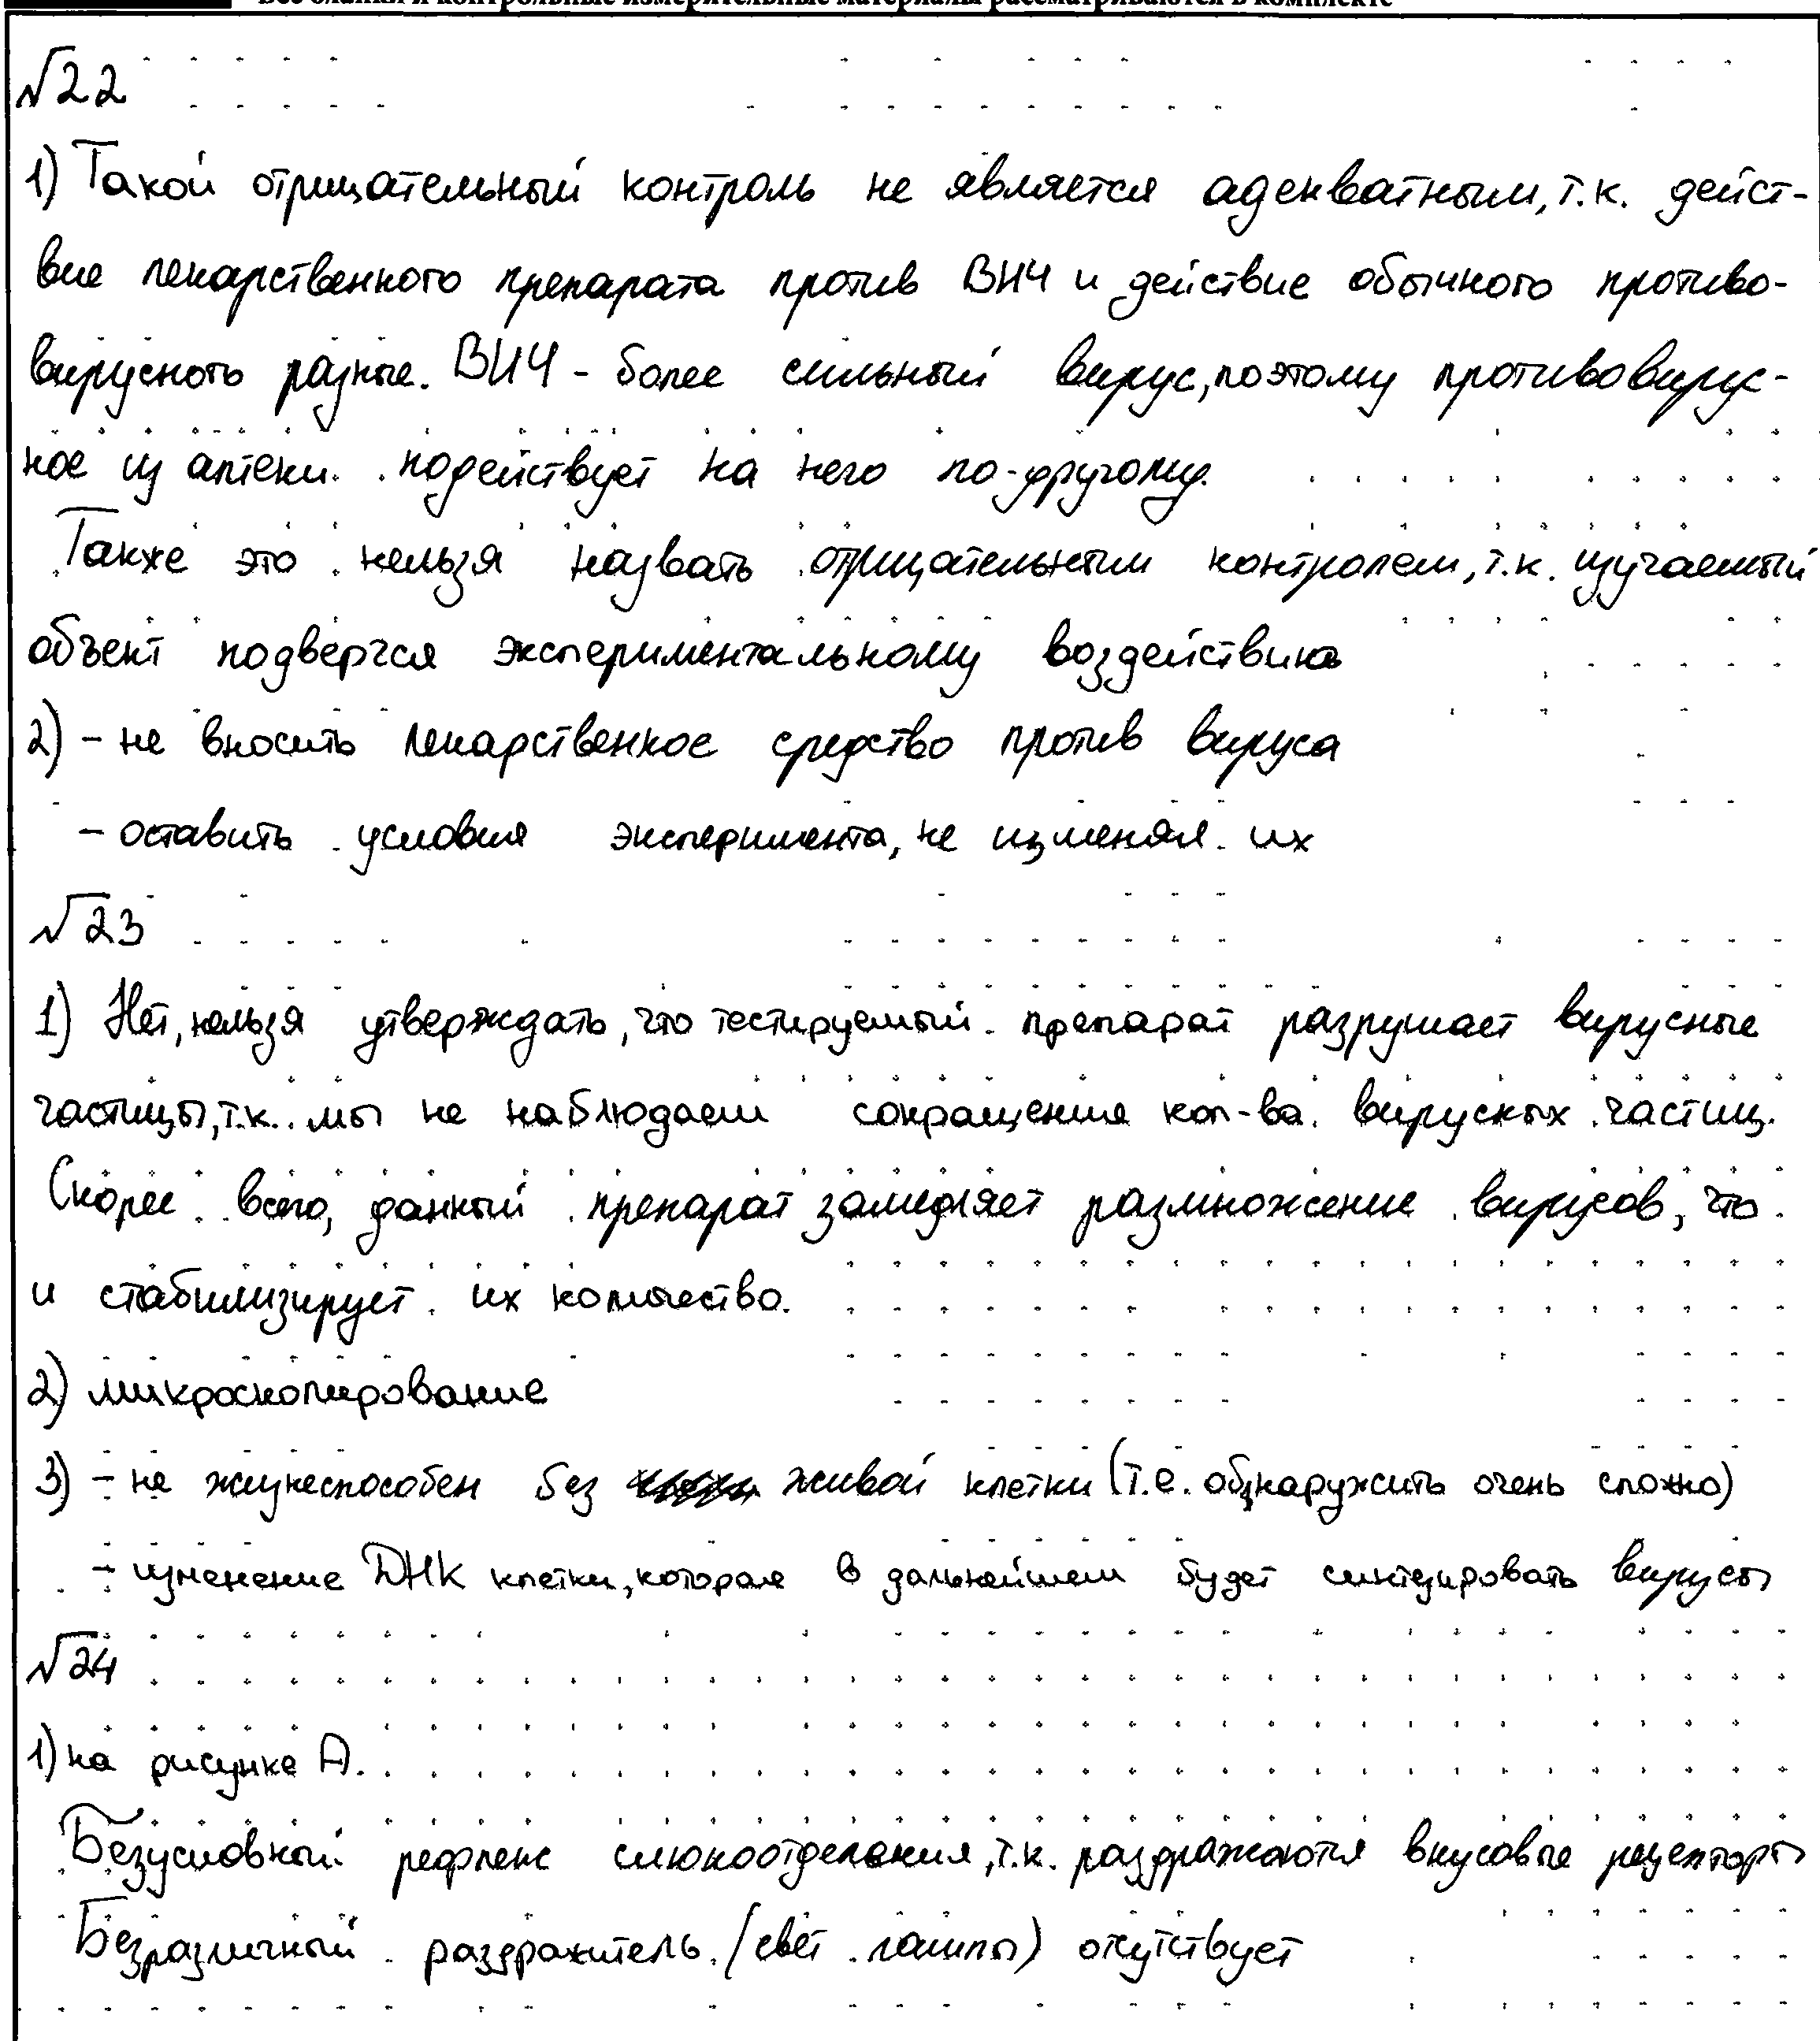 Все бланки и контрольные измерительные материалы рассматриваются в комплекте
№22
1) Такой отрицательный контроль не является адекватным, т.к. дейст-
вие лекарственного препарата против ВИЧ и действие обычного противо-
вирусного разные. ВИЧ - более сильный вирус, поэтому противовирус-
ное из аптеки подействует на него по-другому.
Также это нельзя назвать отрицательным контролем, т.к. изучаемый
объект подвергся экспериментальному воздействию
2) - не вносить лекарственное средство против вируса
- оставить условия эксперимента, не изменяя их
№23
1) Нет, нельзя утверждать, что тестируемый препарат разрушает вирусные
частицы, т.к. мы не наблюдаем сокращение кол-ва вирусных частиц.
Скорее всего, данный препарат замедляет размножение вирусов, что
и стабилизирует их количество.
2) микроскопирование
3) - не жизнеспособен без живой клетки (т.е. обнаружить очень сложно)
- изменение ДНК клетки, которая в дальнейшем будет синтезировать вирусы
№24
1) на рисунке А.
Безусловный рефлекс слюноотделения, т.к. раздражаются вкусовые рецепторы
Безразличный раздражитель (свет лампы) отсутствует